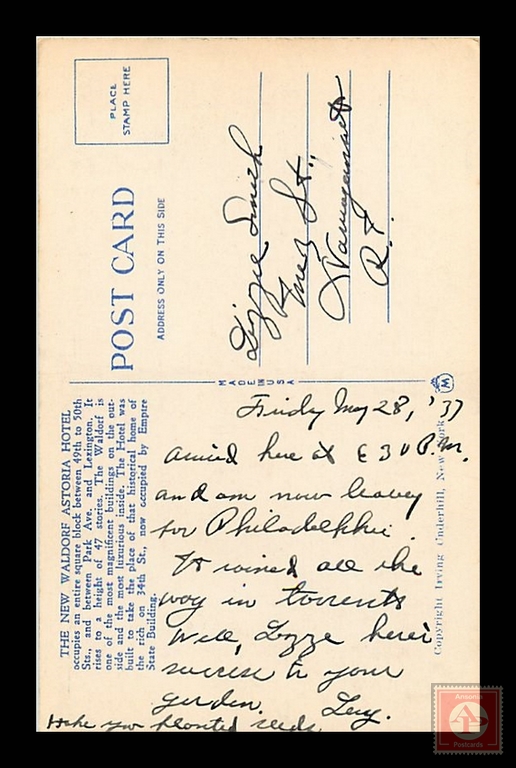 PLACE
STAMP HERE
POST CARD
ADDRESS ONLY ON THIS SIDE
Lizzie Smith
St.,
Narragansett
R. I.
MADE IN USA
THE NEW WALDORF ASTORIA HOTEL
occupies an entire square block between 49th to 50th
Sts., and between Park Ave. and Lexington. It
rises to a height of 47 stories. The Waldorf is
one of the most magnificent buildings on the out-
side and the most luxurious inside. The Hotel was
built to take the place of that historical home of
the rich on 34th St., now occupied by Empire
State Building.
Friday May 28, '37
arrived here at 30 P.M.
and am now leaving
for Philadelphia.
It rained all the
way in torrents
Well, Lizzie here's
success to your
garden.
Hope you planted seeds
Copyright Irving Underhill, New York
M
Ansonia
Postcards